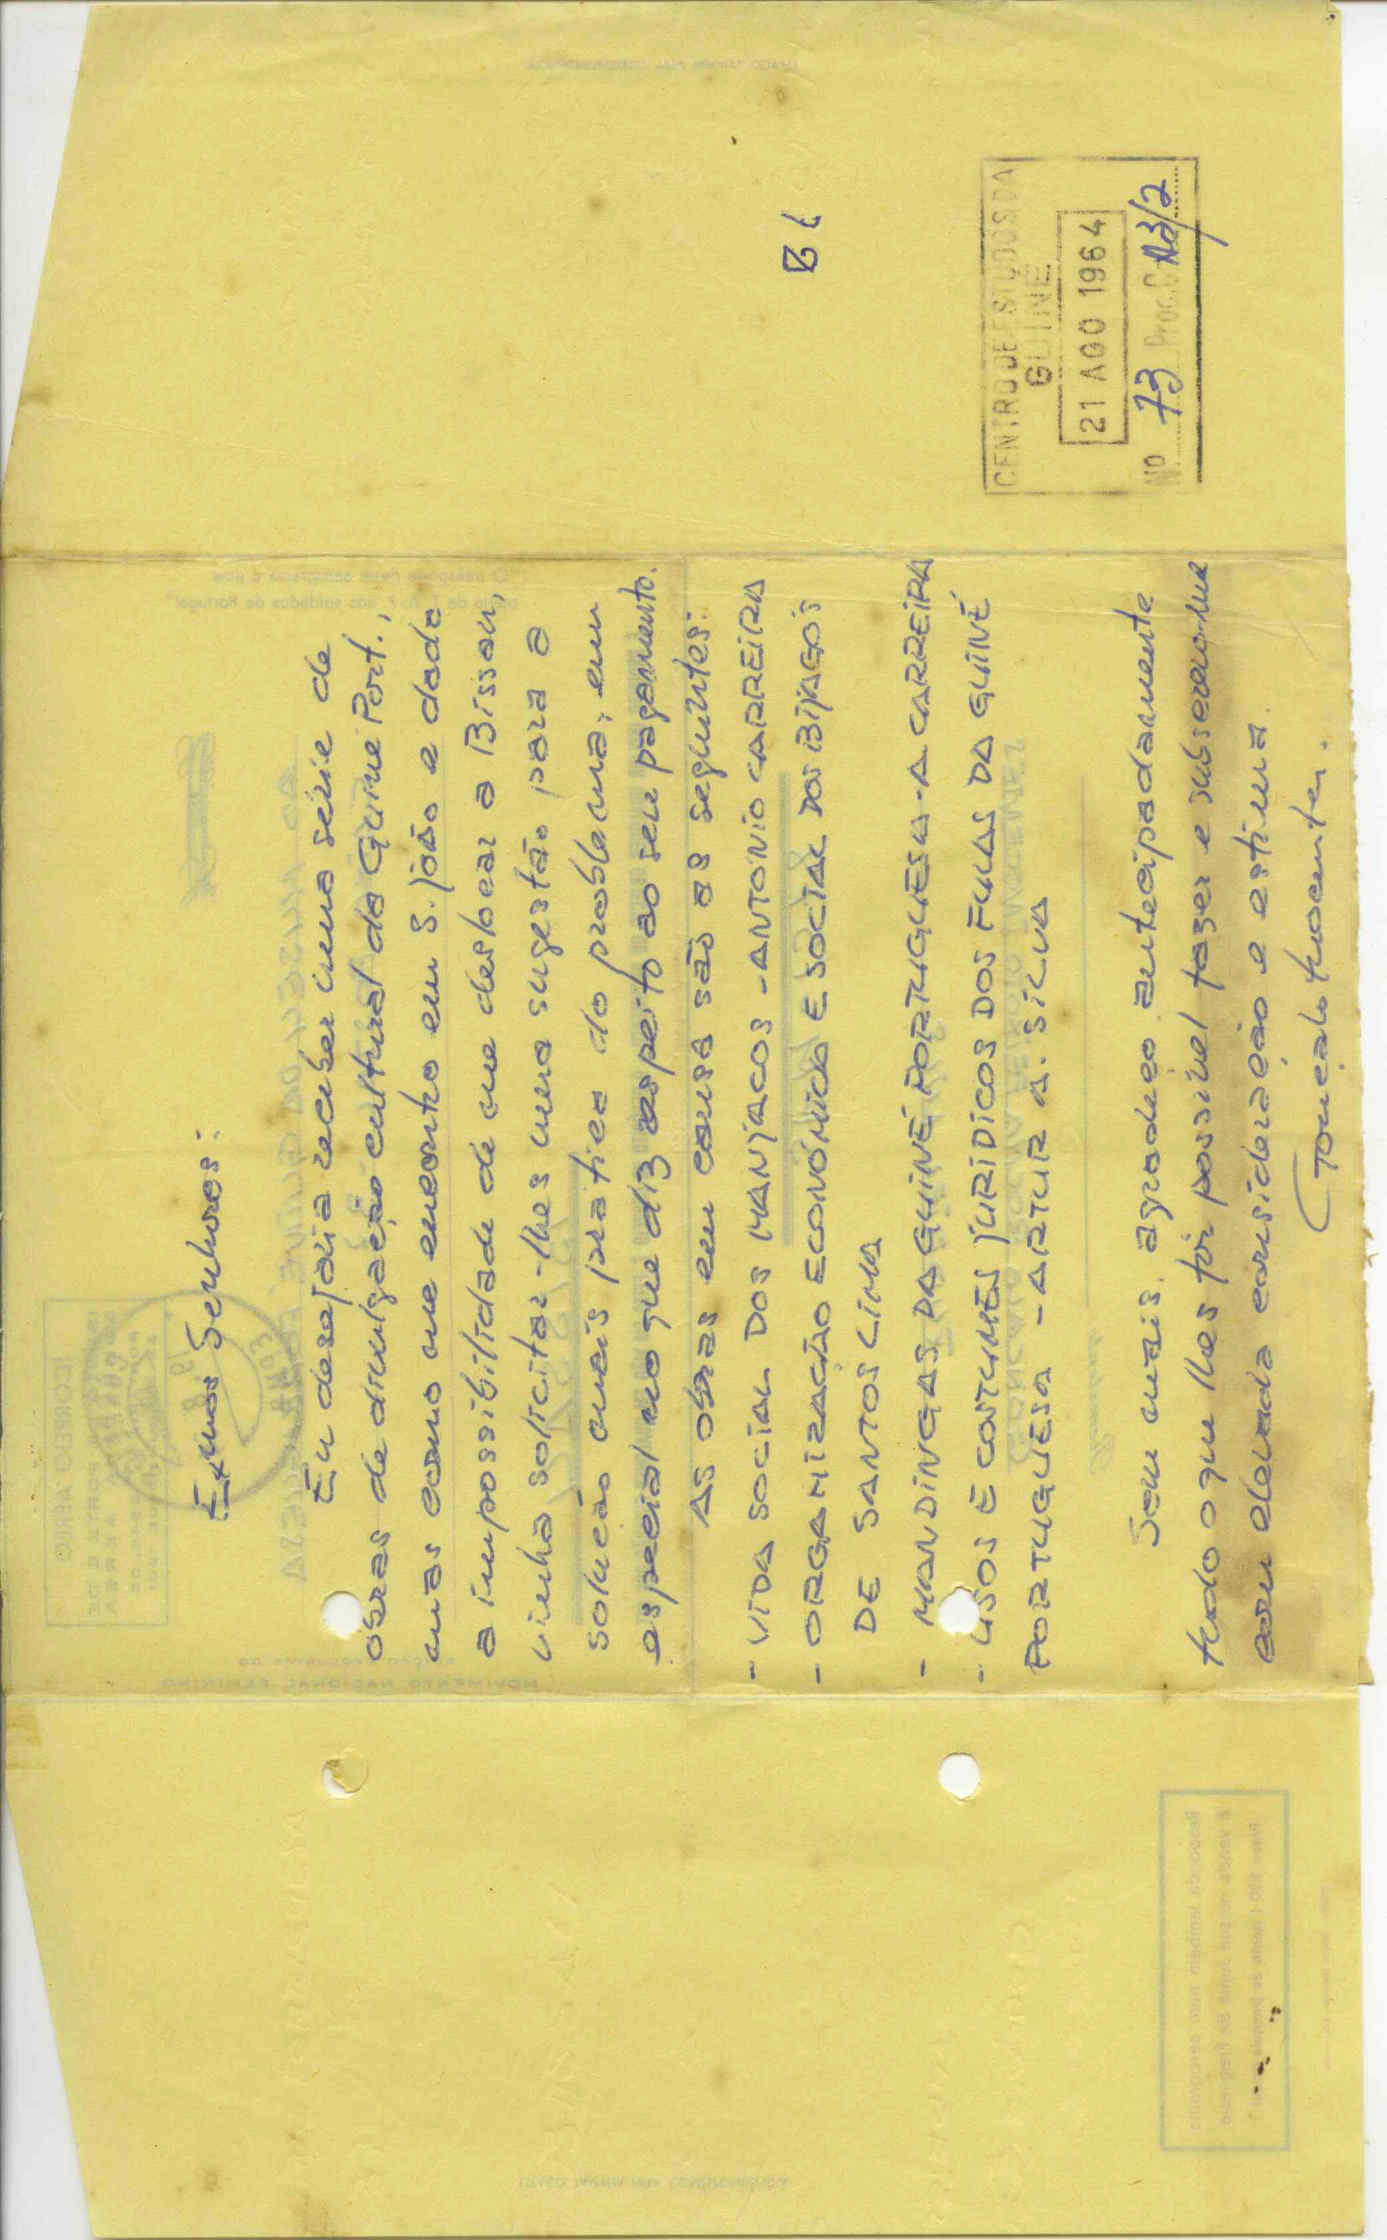 CENTRO DE ESTUDOS DA
GUINÉ
21 AGO 1964
Nº 73 Proc.
Exmos Senhores:
Eu desejaria receber uma série de
obras de divulgação cultural da Guiné Port.,
mas como me encontro em S. João e dada
a impossibilidade de me deslocar a Bissau,
vinha solicitar-lhes uma sugestão para a
solução mais pratica do problema, em
especial no que diz respeito ao seu pagamento.
As obras em causa são as seguintes:
- VIDA SOCIAL DOS MANJACOS - ANTÓNIO CARREIRA
- ORGANIZAÇÃO ECONÓMICA E SOCIAL DOS BIJAGÓS
DE SANTOS LIMA
- MANDINGAS DA GUINÉ PORTUGUESA - A CARREIRA
- USOS E COSTUMES JURIDICOS DOS FULAS DA GUINÉ
PORTUGUESA - ARTUR A. SILVA
Sem mais, agradeço antecipadamente
tudo o que lhes fôr possivel fazer e subscrevo-me
com elevada consideração e estima.